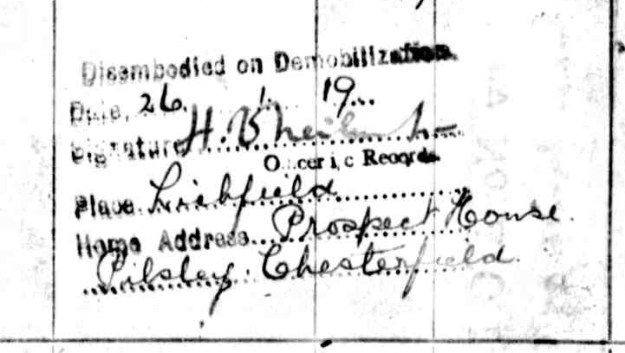 Disembodied on Demobilization.
Date, 26. 1. 19...
Signature H.
Officer i/c Records.
Place Lichfield
Home Address... Prospect House.
Pilsley. Chesterfield